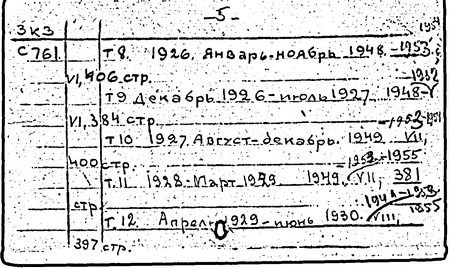 -5-
3К3
С761. Т 8. 1926. Январь-ноябрь 1948 - 1953
VI, 406 стр. 1952
Т 9 Декабрь 1926-июль 1927 1948-
VI, 384 стр. 1952
Т 10 1927. Август-декабрь. 1949 VII,
400 стр. 1952-1955
Т. 11 1928-Март 1929 1949. VII, 381
стр.
Т. 12. Апрель 1929 - июнь 1930. VIII, 1955
397 стр.